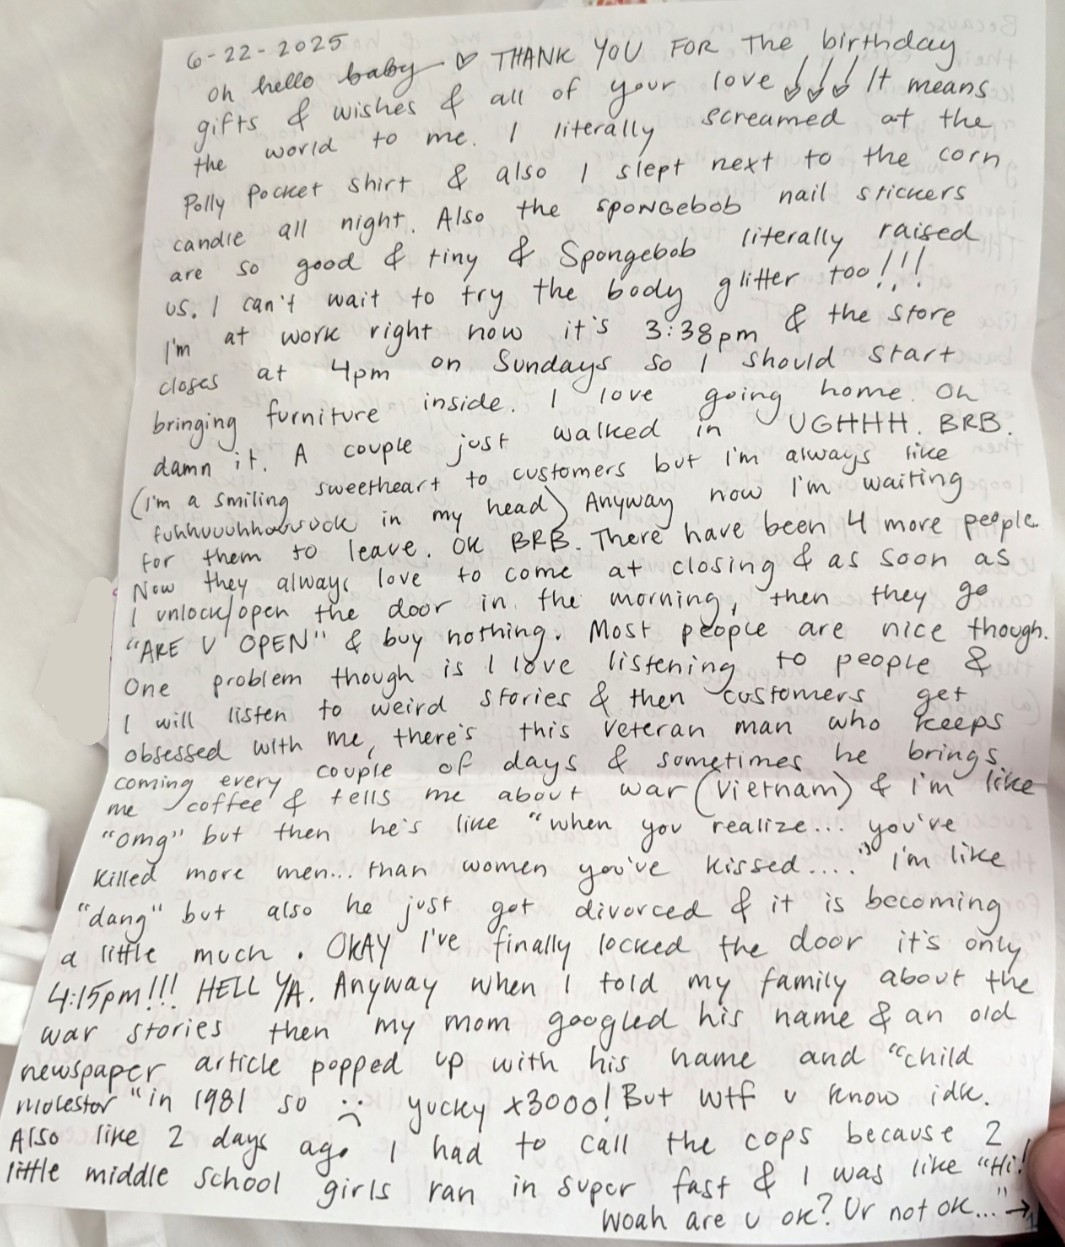 6-22-2025
oh hello baby ♡ THANK YOU FOR THE birthday
gifts & wishes & all of your love ♡♡♡ It means
the world to me. I literally screamed at the
Polly Pocket shirt & also I slept next to the corn
candle all night. Also the spongebob nail stickers
are so good & tiny & Spongebob literally raised
us. I can't wait to try the body glitter too!!!
I'm at work right now it's 3:38pm & the store
closes at 4pm on Sundays so I should start
bringing furniture inside. I love going home. Oh
damn it. A couple just walked in UGHHH. BRB.
(I'm a smiling sweetheart to customers but I'm always like
in my head) Anyway now I'm waiting
for them to leave. OK BRB. There have been 4 more people
Now they always love to come at closing & as soon as
I unlock/open the door in the morning, then they go
"ARE U OPEN" & buy nothing. Most people are nice though.
One problem though is I love listening to people &
I will listen to weird stories & then customers get
obsessed with me, there's this veteran man who keeps
coming every couple of days & sometimes he brings
me coffee & tells me about war (Vietnam) & i'm like
"omg" but then he's like "when you realize... you've
killed more men... than women you've kissed...." i'm like
"dang" but also he just got divorced & it is becoming
a little much. OKAY I've finally locked the door it's only
4:15pm!!! HELL YA. Anyway when I told my family about the
war stories then my mom googled his name & an old
newspaper article popped up with his name and "child
molestor" in 1981 so :( yucky x3000! But wtf u know idk.
Also like 2 days ago I had to call the cops because 2
little middle school girls ran in super fast & I was like "Hi!
Woah are u ok? Ur not ok..." →